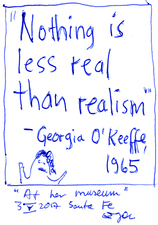 "Nothing is
less real
than realism"
- Georgia O'Keeffe,
1965
"At her museum"
3 V 2017 Santa Fe